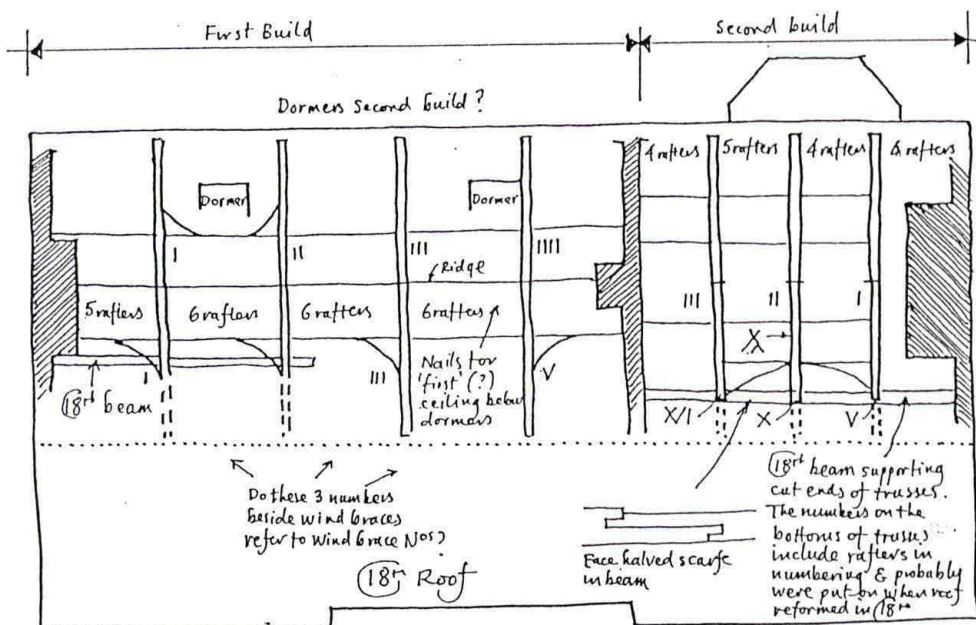 First Build
Second build
Dormers second build?
4 rafters
5 rafters
4 rafters
6 rafters
Dormer
Dormer
I
II
III
IIII
Ridge
III
II
I
5 rafters
6 rafters
6 rafters
6 rafters
X
I
III
V
Nails for
'first' (?)
ceiling below
dormers
18th beam
X/I
X
V
Do these 3 numbers
beside wind braces
refer to wind brace Nos?
18th Roof
Face halved scarfe
in beam
18th beam supporting
cut ends of trusses.
The numbers on the
bottoms of trusses
include rafters in
numbering & probably
were put on when roof
reformed in 18th